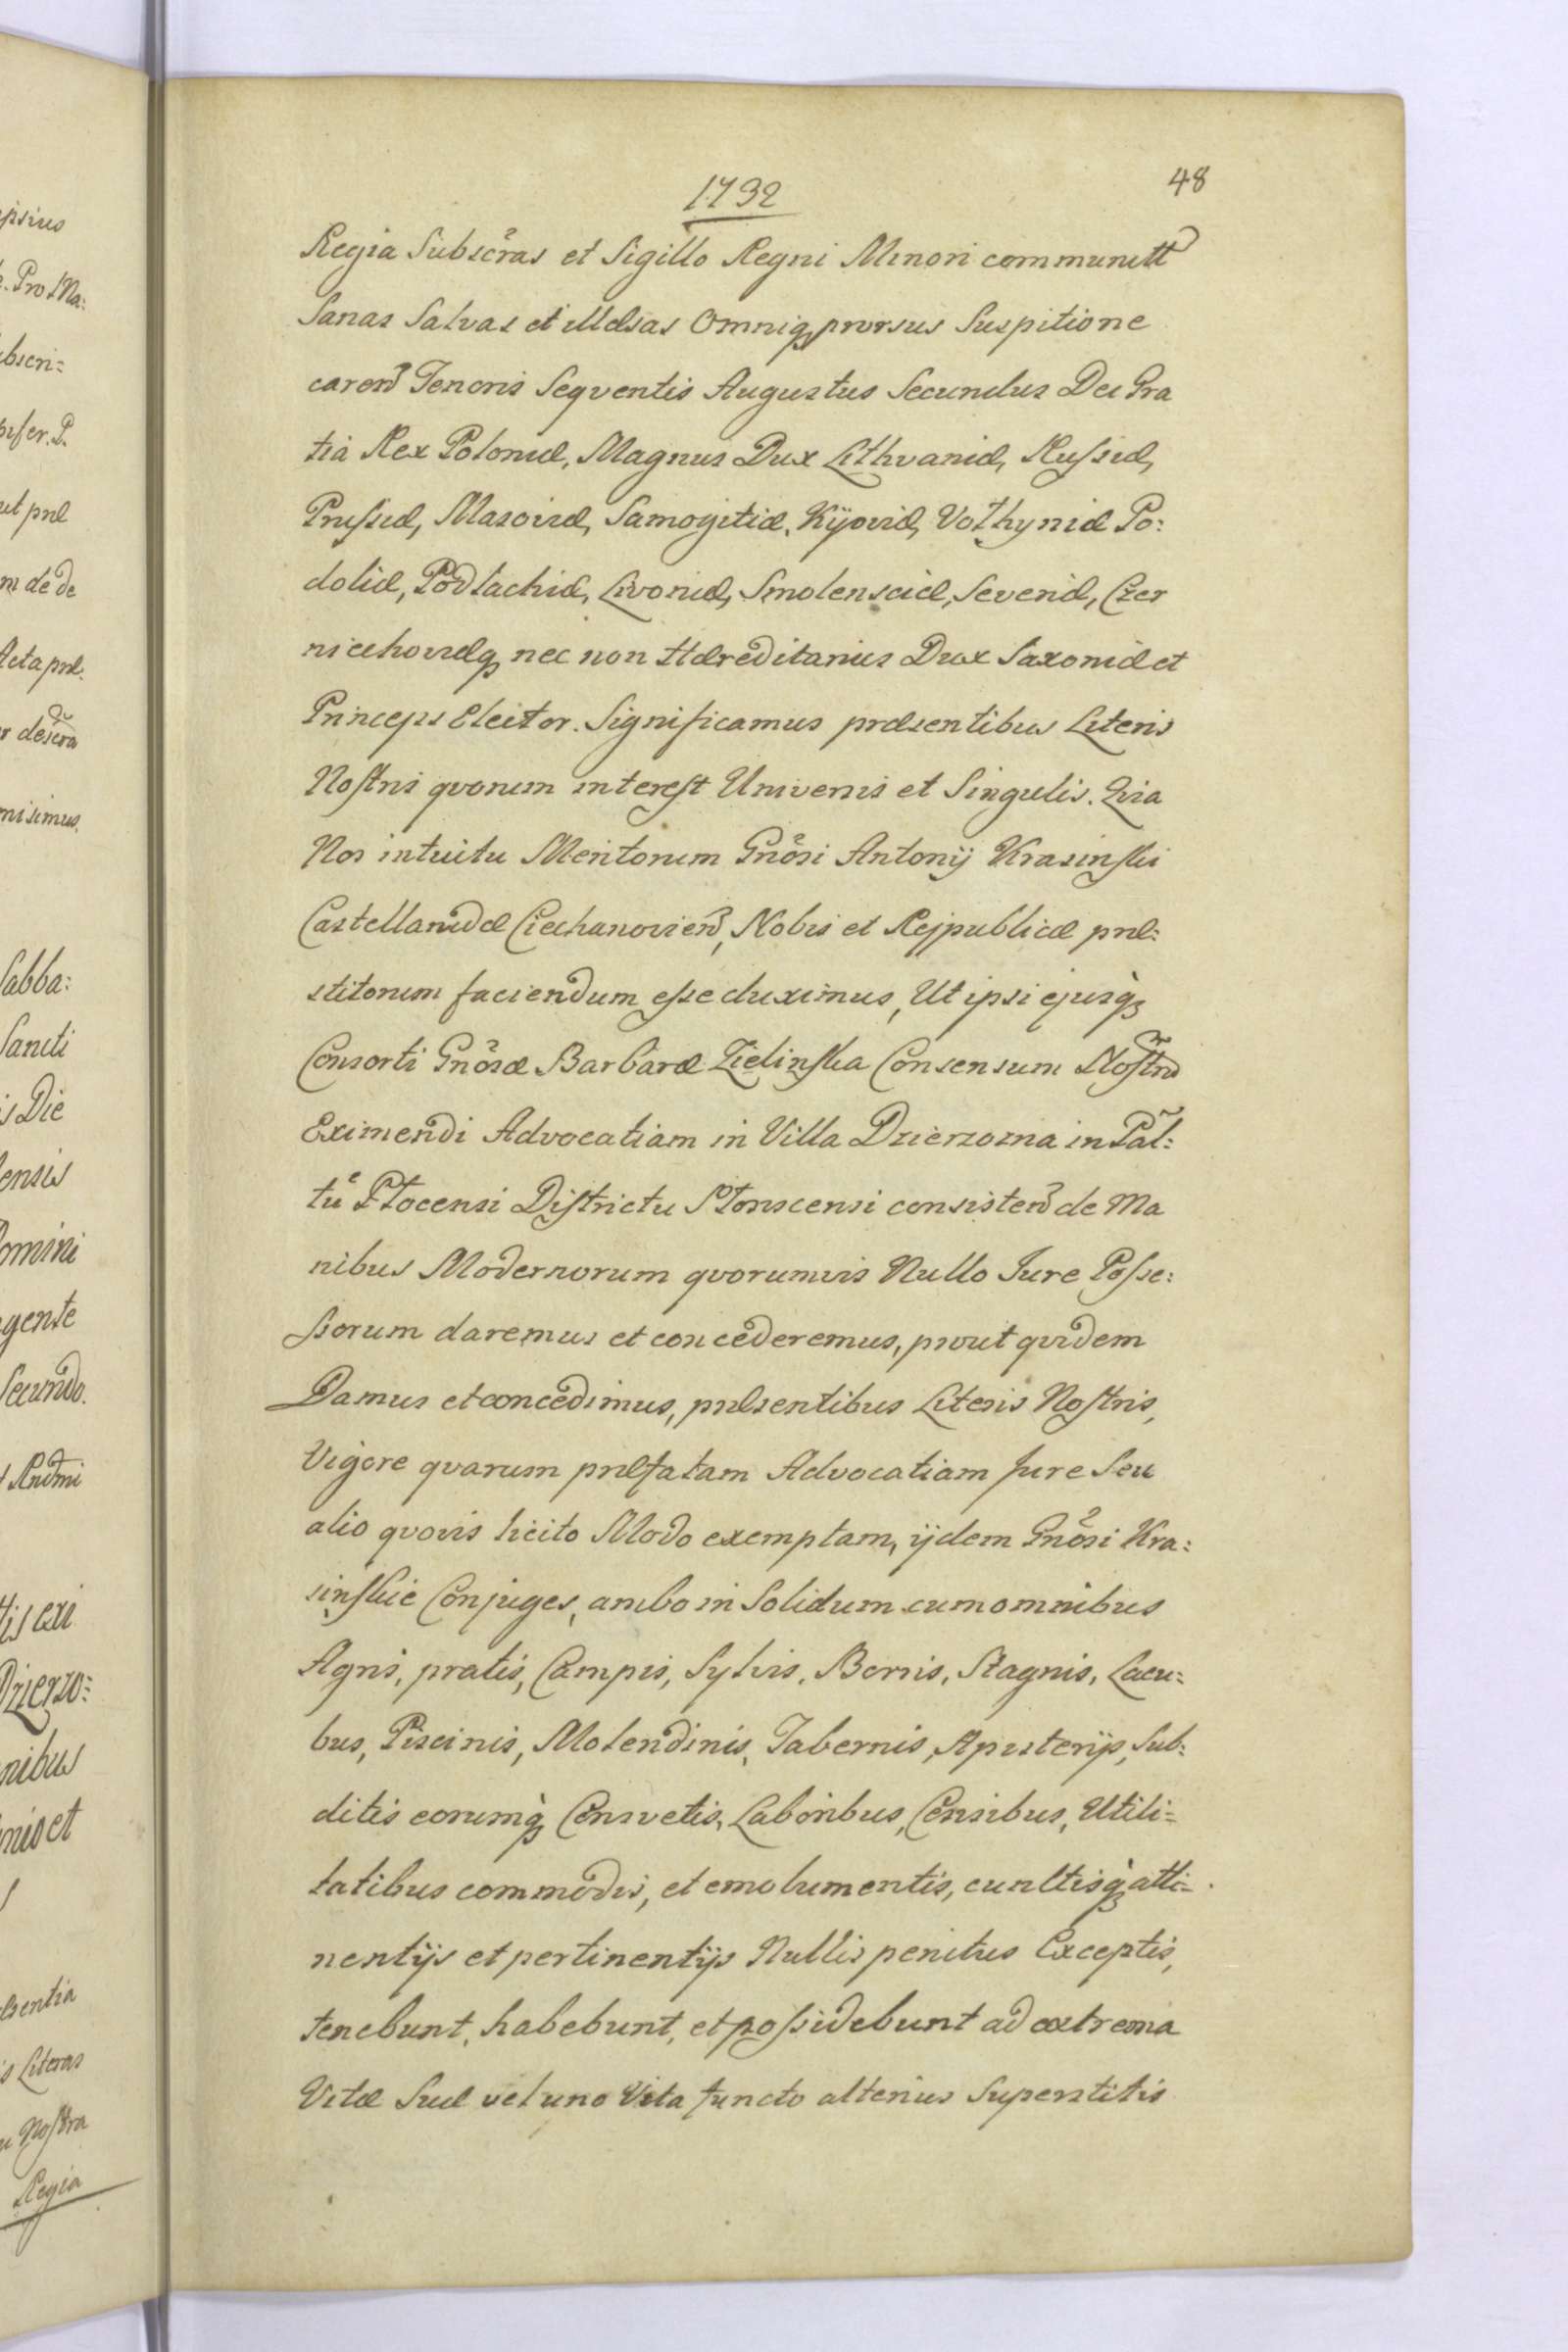 1732
48
Regia Subscras et Sigillo Regni Minori communitt
Sanas Salvas et illæsas Omniq̨ prorsus Suspitione
caren Tenoris Seqventis Augustus Secundus Dei Gra
tia Rex Poloniæ, Magnus Dux Lithvaniæ, Russiæ,
Prussiæ, Masoviæ, Samogitiæ, Kijoviæ, Volhyniæ Po:
doliæ, Podlachiæ, Livoniæ, Smolensciæ, Severiæ, Czer
niechoviæq̨ nec non Hæreditarius Dux Saxoniæ et
Princeps Elector. Significamus præsentibus Literis
Nostris qvorum interest Universis et Singulis. Qvia
Nos intuitu Meritorum Gnosi Antonij Krasinski
Castellanidæ Ciechanovien, Nobis et Rejpublicæ præ:
stitorum faciendum esse duximus, Ut ipsi ejusq̨
Consorti Gnosæ Barbaræ Zielinska Consensum Nostru
Eximendi Advocatiam in Villa Dzierzozna in Pal:
tu Plocensi Districtu Plonscensi consisten de Ma
nibus Modernorum qvorumvis Nullo Jure Posse:
ssorum daremus et concederemus, prout qvidem
Damus et concedimus, præsentibus Literis Nostris,
Vigore qvarum præfatam Advocatiam Jure Seu
alio qvovis licito Modo exemptam, ijdem Gnosi Kra:
sinskie Conjuges, ambo in Solidum cum omnibus
Agris, pratis, Campis, Sylvis, Borris, Stagnis, Lacu:
bus, Piscinis, Molendinis, Tabernis, Apisterijs, Sub:
ditis eorumq̨ Consvetis, Laboribus, Censibus, Utili=
tatibus commodis, et emolumentis, cunctisq̨ atti=
nentijs et pertinentijs Nullis penitus Exceptis,
tenebunt, habebunt, et possidebunt ad extrema
Vitæ Suæ vel uno Vita functo alterius Superstitis